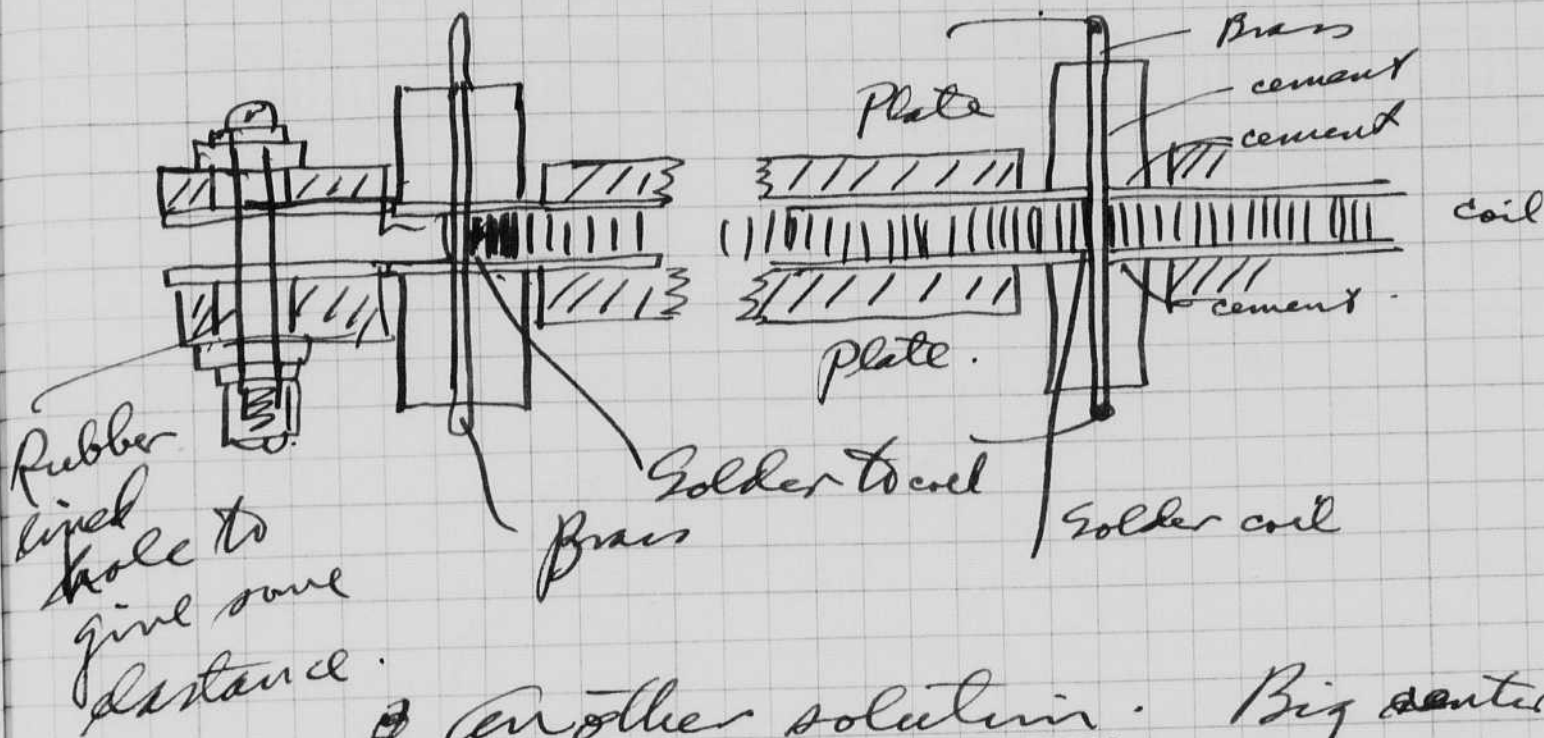 Brass
cement
cement
Plate
coil
cement.
Plate.
Rubber
lined
hole to
give some
distance.
Solder to coil
Brass
Solder coil
another solution. Big center